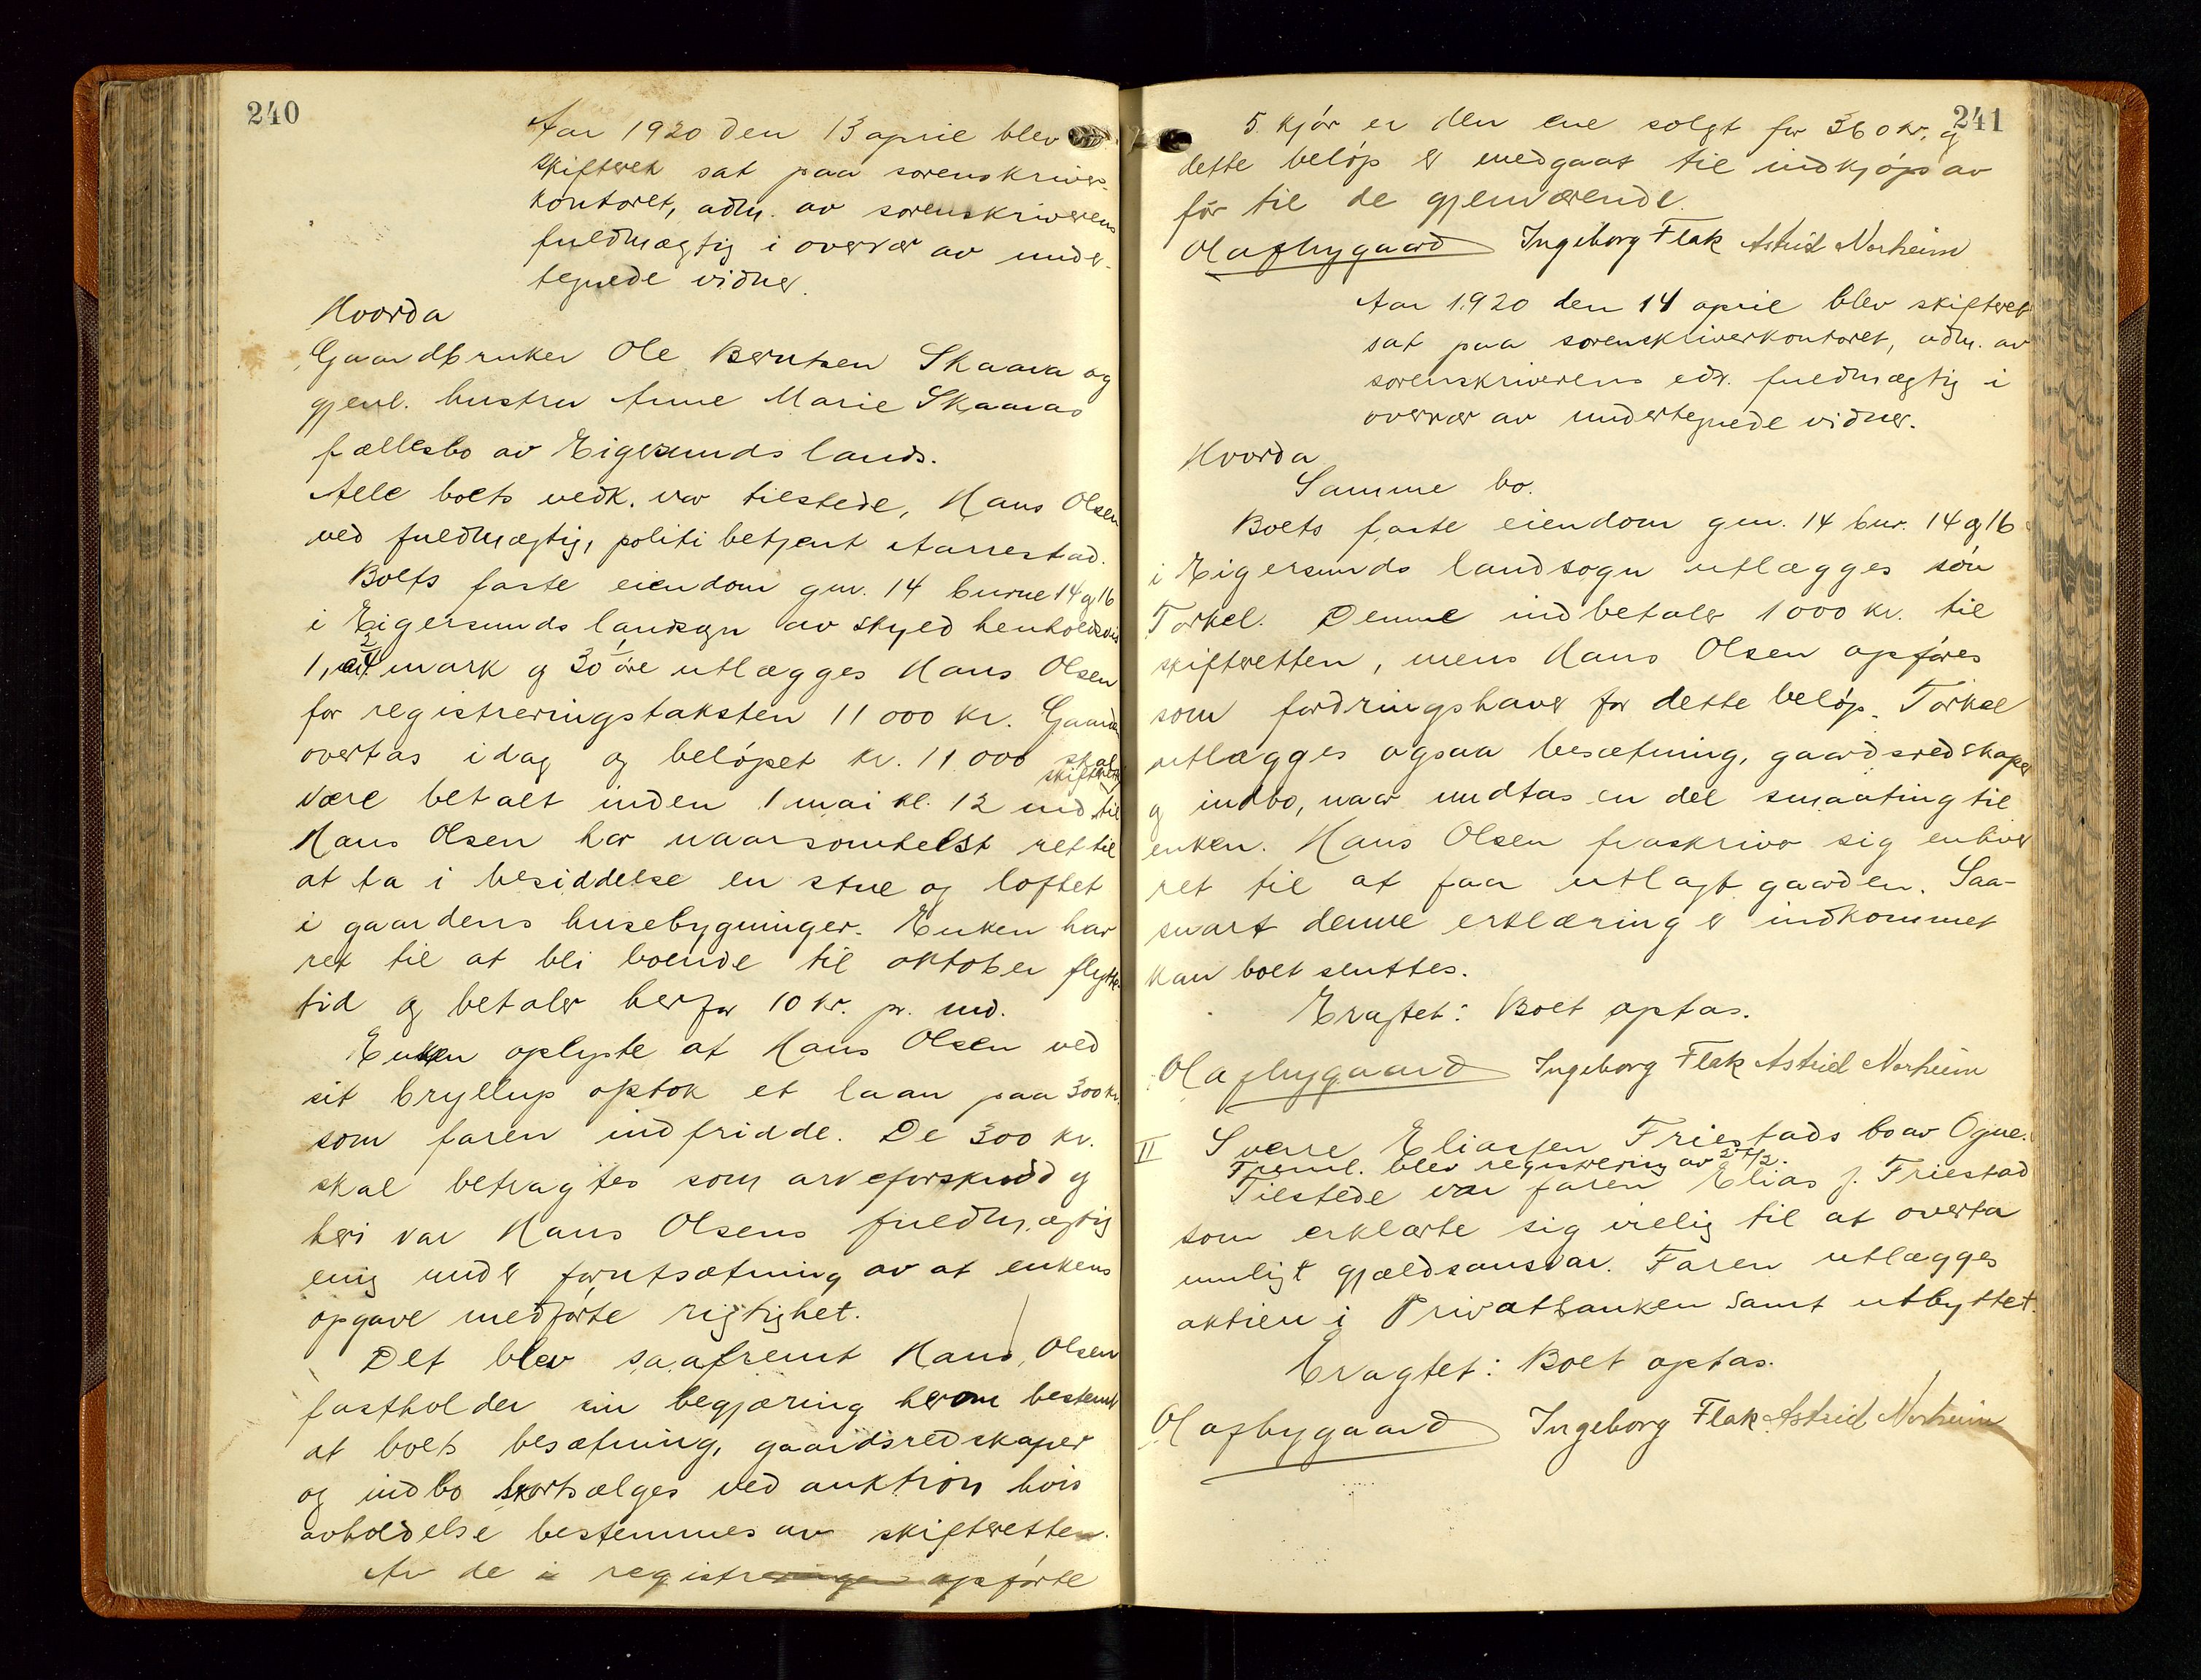 240
Aar 1920 den 13 april blev
skifteret sat paa sorenskriver-
kontoret, adm. av sorenskriverens
fuldmægtig i overvær av under-
tegnede vidner.
Hvorda
Gaardbruker Ole Berntsen Skaara og
gjenl. hustru Anne Marie Skaaras
fællesbo av Eigersunds lands.
Alle boets vedk. var tilstede, Hans Olsen
ved fuldmægtig, politibetjent Aarrestad.
Boets faste eiendom gnr. 14 burne 14 og 16
i Eigersunds landsogn av skyld henholdsvis
1, mark og 30 øre utlægges Hans Olsen
for registreringstaksten 11000 kr. Gaarden
overtas idag og beløpet kr. 11000 skal
skifteretten
være betalt inden 1 mai kl. 12 md. til
Hans Olsen har naarsomhelst ret til
at ta i besiddelse en stue og loftet
i gaardens husebygninger. Enken har
ret til at bli boende til oktober flytte-
tid og betaler herfor 10 kr. pr. md.
Enken oplyste at Hans Olsen ved
sit bryllup optok et laan paa 300 kr.
som faren indfridde. De 300 kr.
skal betragtes som arveforskudd og
heri var Hans Olsens fuldmægtig
enig under forutsætning av at enkens
opgave medførte rigtighet.
Det blev saafremt Hans Olsen
fastholder sin begjæring herom bestemt
at boets besætning, gaardsredskaper
og indbo bortsælges ved auktion hvis
avholdelse bestemmes av skifteretten.
Av de i registreringen opførte
241
5 kjør er den ene solgt for 360 kr. og
dette beløp er medgaat til indkjøp av
fór til de gjenværende.
Olaf Nygaard Ingeborg Flak Astrid Norheim
Aar 1920 den 14 april blev skifteret
sat paa sorenskriverkontoret, adm. av
sorenskriverens edv. fuldmægtig i
overvær av undertegnede vidner.
Hvorda
Samme bo.
Boets faste eiendom gnr. 14 bnr. 14 og 16
i Eigersunds landsogn utlægges søn
Torkel. Denne indbetaler 1000 kr. til
skifteretten, mens Hans Olsen opføres
som fordringshaver for dette beløp. Torkel
utlægges ogsaa besætning, gaardsredskaper
og indbo, naar undtas en del smaating til
enken. Hans Olsen fraskriver sig enhver
ret til at faa utlagt gaarden. Saa-
snart denne erklæring er indkommet
kan boet sluttes.
Eragtet: Boet optas.
Olaf Nygaard Ingeborg Flak Astrid Norheim
II Sverre Eliassen Friestads bo av Ogne.
Freml. blev registrering av 27/2.
Tilstede var faren Elias J. Friestad
som erklærte sig villig til at overta
muligt gjældsansvar. Faren utlægges
aktien i Privatbanken samt utbyttet.
Eragtet: Boet optas.
Olaf Nygaard Ingeborg Flak Astrid Norheim